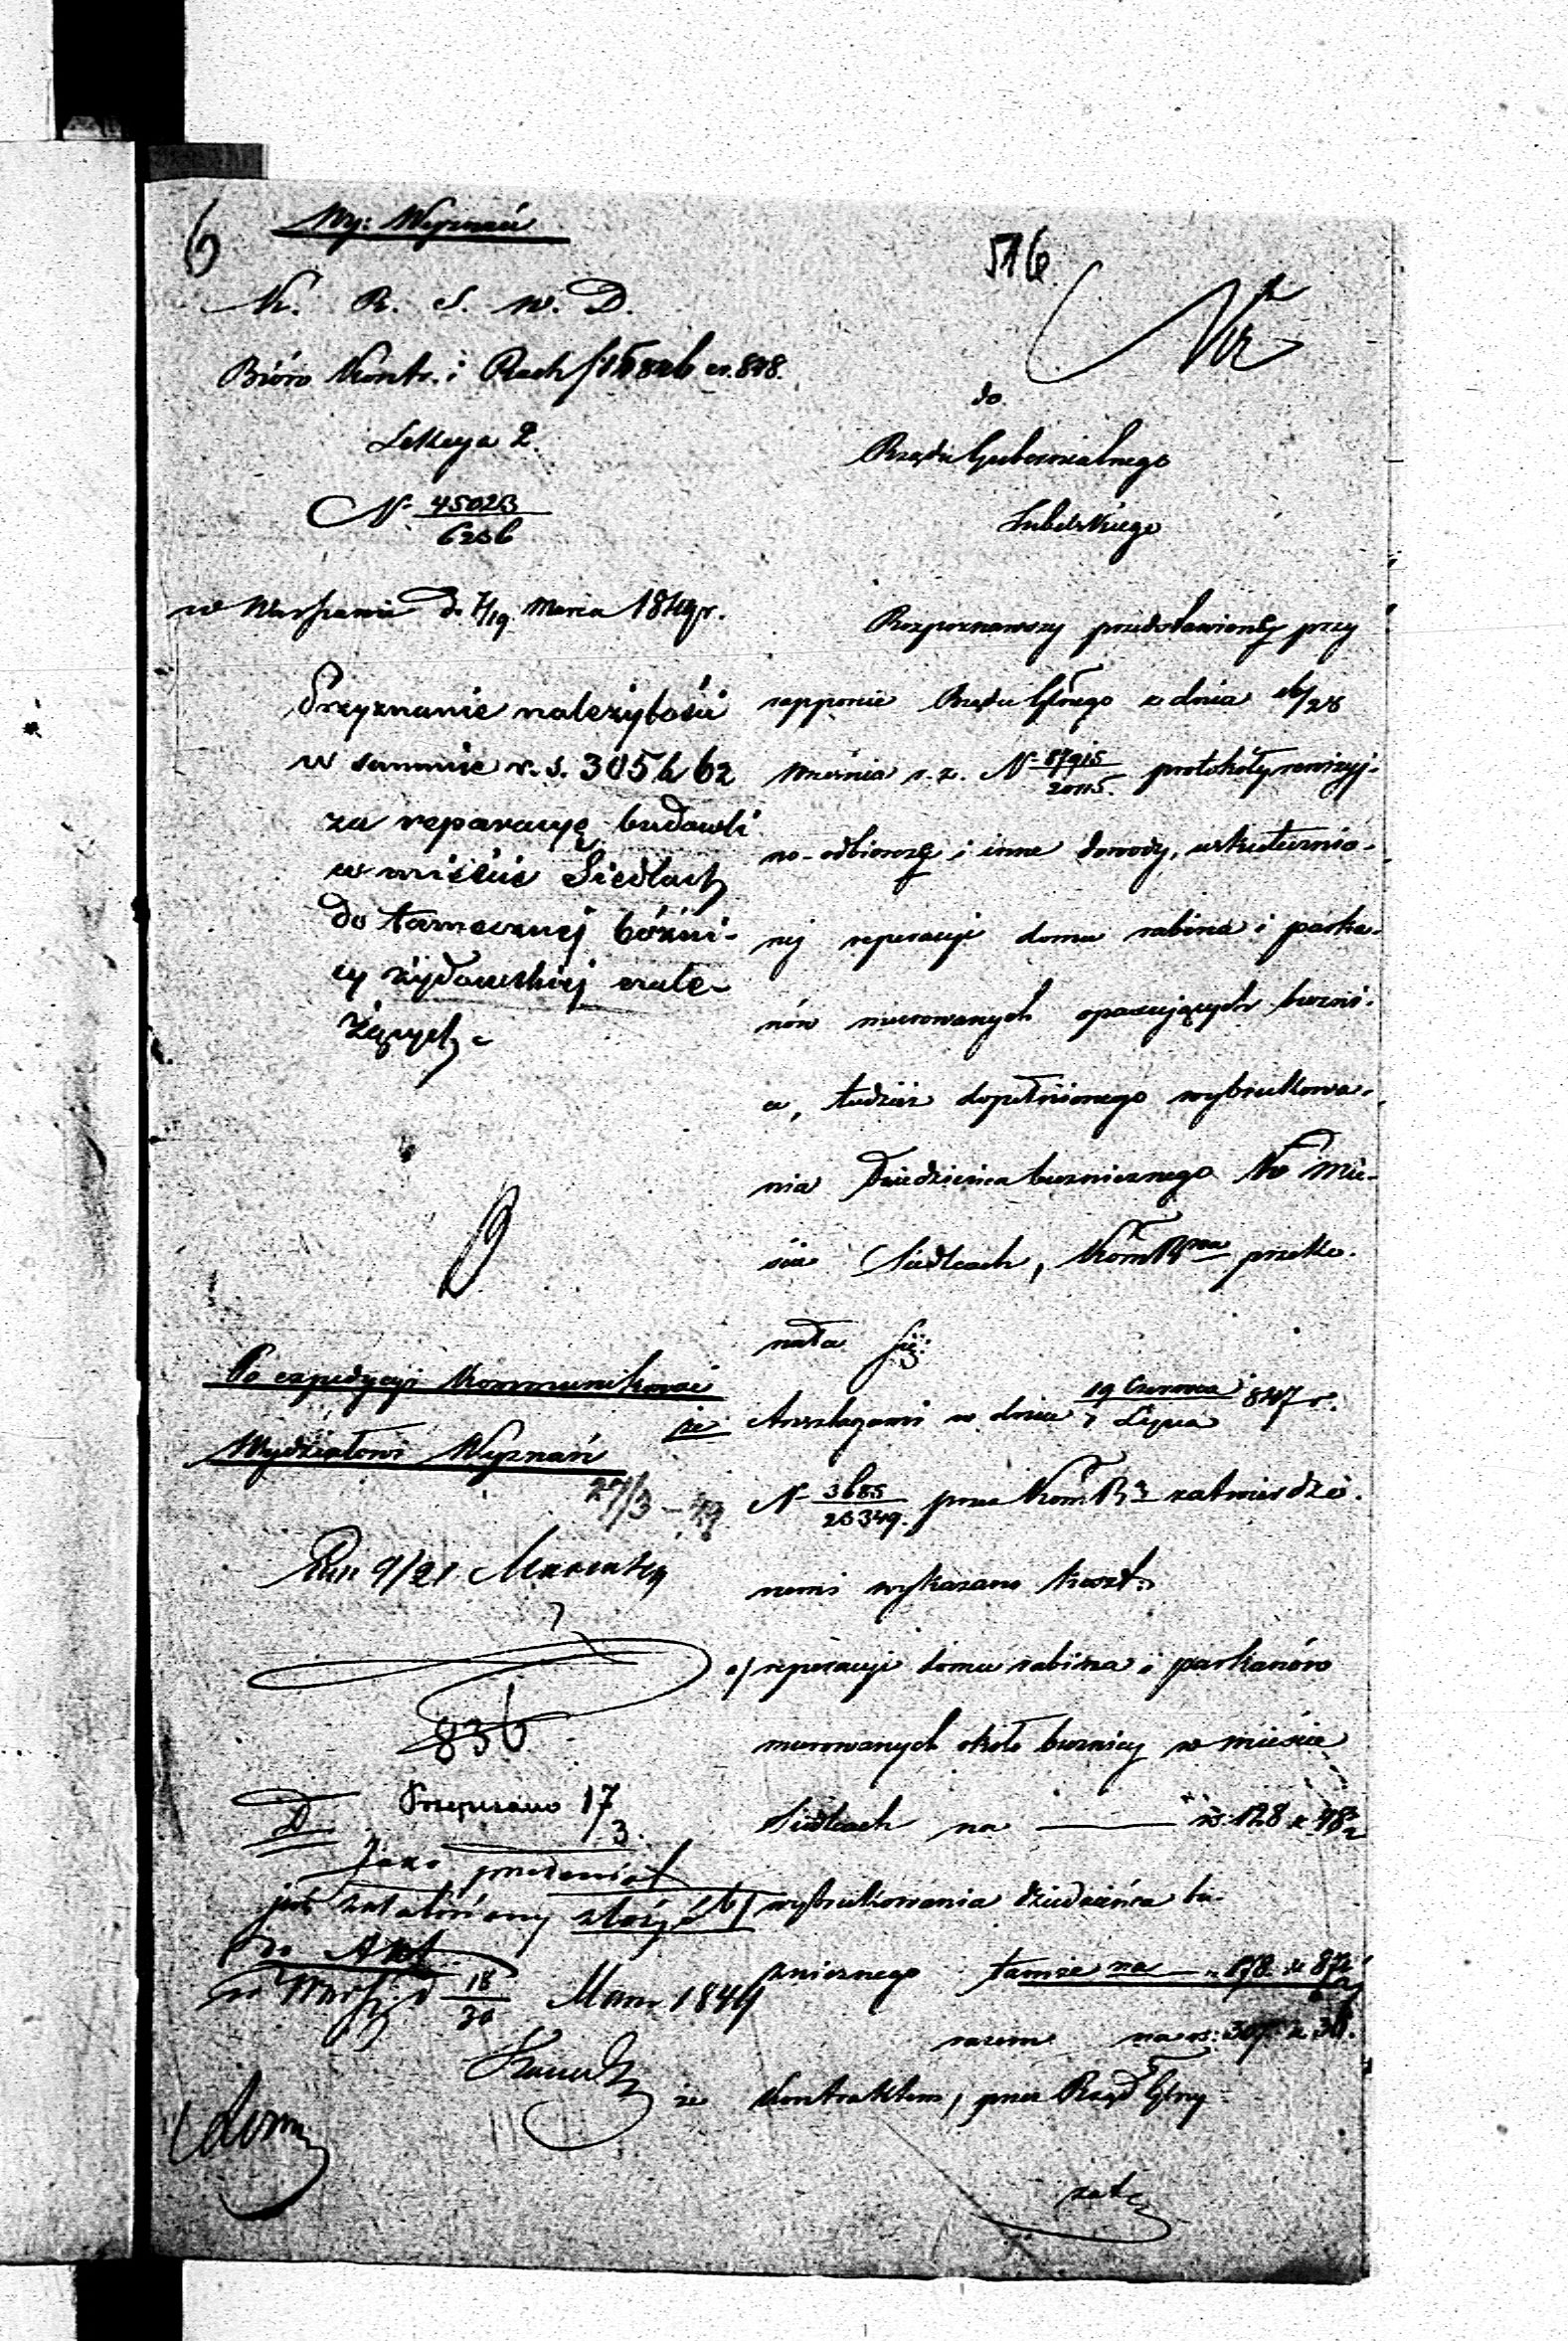 6
Wy: Wyznań
516
K. R. S. W. D.
Bióro Kontr. i Rach
Sekcya 2.
N 45023/6256
w Warszawie d. 7/19 Marca 1849 r.
Przyznanie należytości
w summie r. s. 305 k 62
za reparacyę budowli
w mieście Siedlcach
do tamecznej bóżni-
cy żydowskiej nale-
żących.
Po expedycyi kommunikować
Wydziałowi Wyznań
27/3 – 49
9/21 Marca 49
836
Przepisano 17/3.
Jako przedmiot
już załatwiony złożyć
do Akt
w Warsz. d 18/30 Marca 1849
do
Rządu Gubernialnego
Lubelskiego
Rozpoznawszy przedstawione przy
rapporcie Rządu Głnego z dnia 16/28
Września r. z. N 87915/20115 protokóły rewizyj-
no-odbiorcze i inne dowody, uskutecznio-
nej reperacyi domu rabina i parka-
nów murowanych opasujących buzni-
cę, tudzież dopełnionego wybrukowa-
nia Dziedzińca buznicznego w mie-
ście Siedlcach, KomRowa przeko-
nała się:
że Anszlagami w dniu 19 Czerwca/1 Lipca 847 r.
N 3685/25349 przez KomRą zatwierdzo-
nemi wykazano koszt:
a/ reperacyi domu rabina i parkanów
murowanych około buznicy w mieście
Siedlcach na — rs: 128 k 48½
b/ wybrukowania dziedzińca bu-
znicznego tamże na — „ 178 k 87½
razem na rs: 307 k 36.
że Kontraktem, przez Rząd Głny
zatw